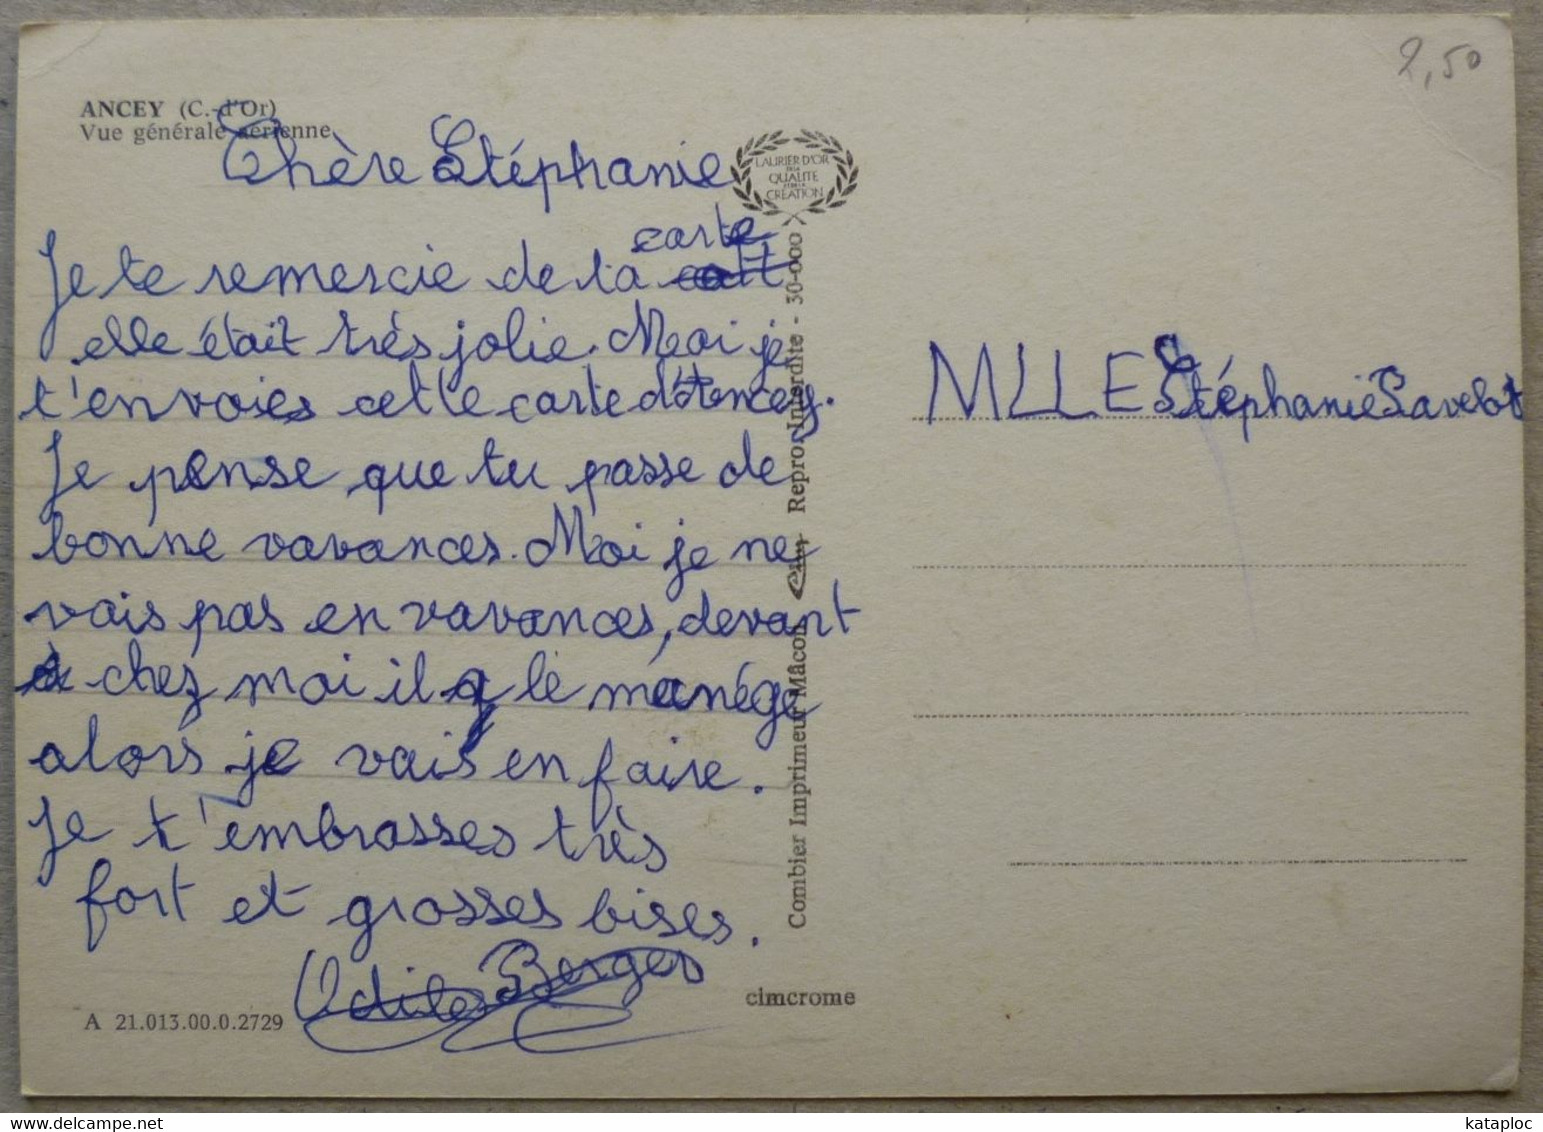 2,50
ANCEY (C.-d'Or)
Vue générale aérienne
Chère Stéphanie
LAURIER D'OR
DE LA
QUALITE
ET DE LA
CRÉATION
Je te remercie de la carte
elle était très jolie. Moi je
t'envoies cette carte d'Ancey.
Je pense que tu passe de
bonne vavances. Moi je ne
vais pas en vavances, devant
chez moi il y le manége
alors je vais en faire.
Je t'embrasses très
fort et grosses bises.
Odile Berger
MLLE Stéphanie Pavelot
Combier Imprimeur Mâcon Cim Repro. Interdite - 30-000
cimcrome
A 21.013.00.0.2729
kataploc